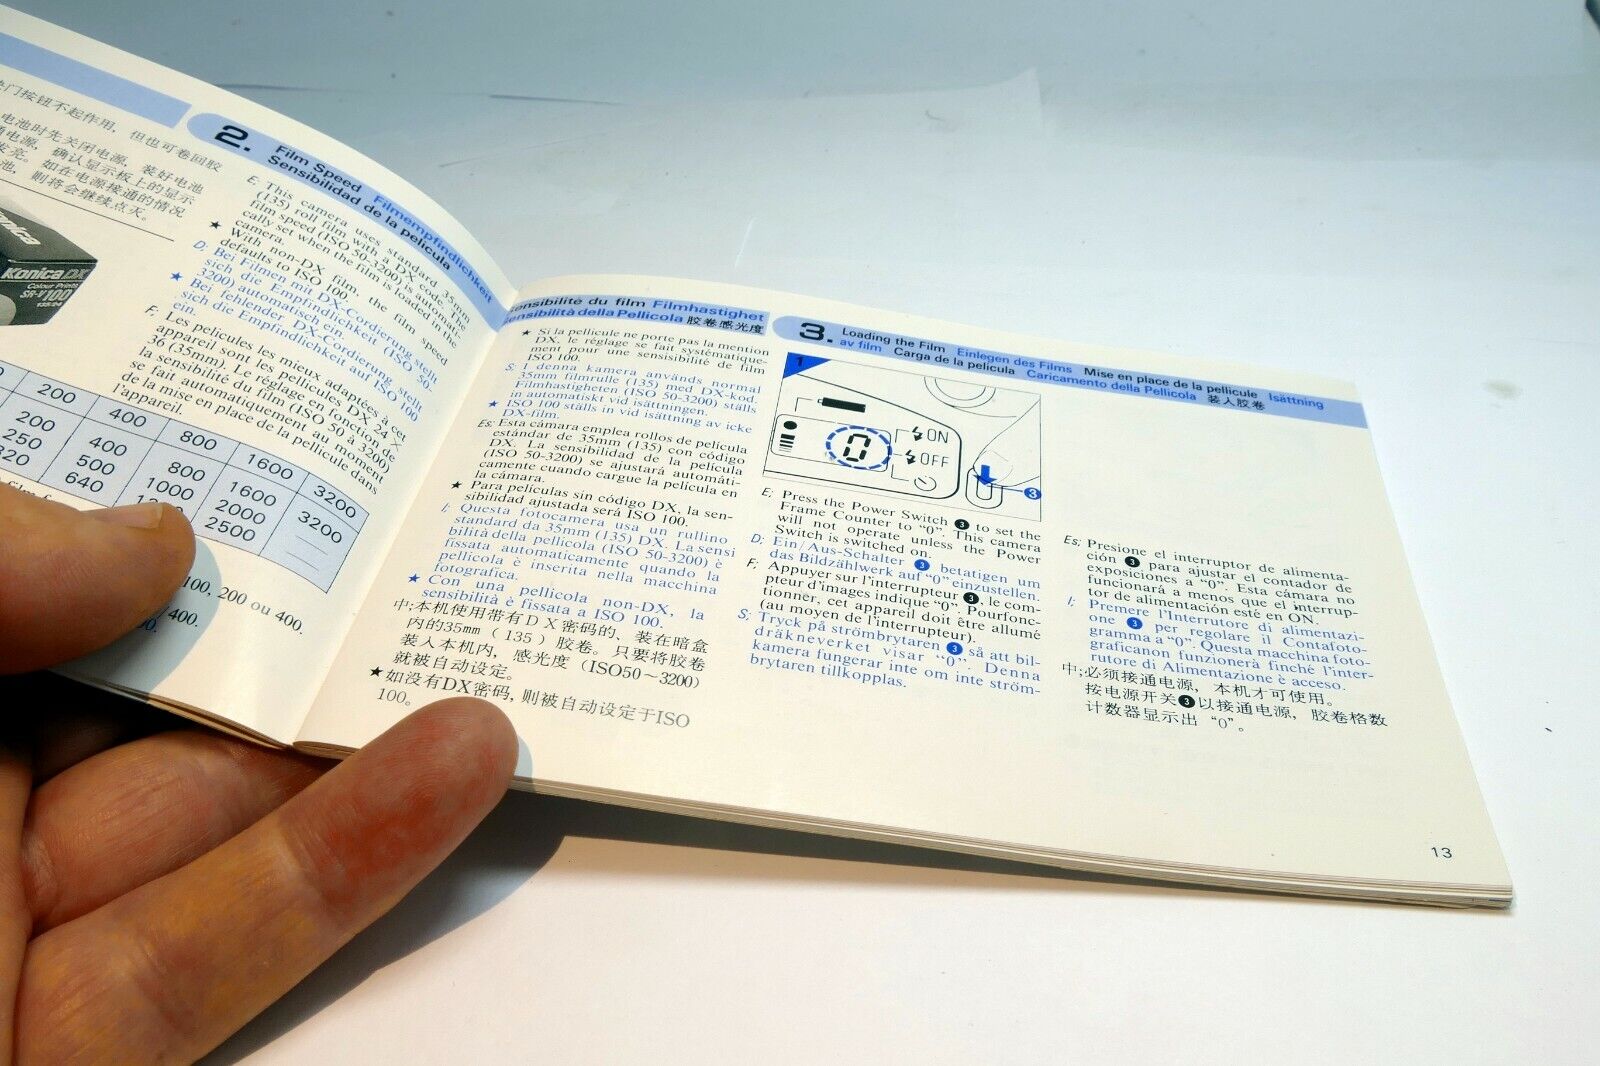 门按钮不起作用，但也可卷回胶
电池时先关闭电源，装好电池
电源，确认显示板上的显示
发亮。如在电源接通的情况
池，则将会继续点灭。
Konica
Konica DX
Colour Prints
SR-V100
2.
Film Speed Filmempfindlichkeit
Sensibilidad de la película
E; This camera uses standard 35mm
(135) roll film with a DX code. The
film speed (ISO 50-3200) is automati-
cally set when the film is loaded in the
camera.
★ With non-DX film, the film speed
defaults to ISO 100.
D; Bei Filmen mit DX-Cordierung stellt
sich die Empfindlichkeit (ISO 50-
3200) automatisch ein.
★ Bei fehlender DX-Cordierung stellt
sich die Empfindlichkeit auf ISO 100
ein.
F; Les pelicules les mieux adaptées à cet
appareil sont les pellicules DX 24 ×
36 (35mm). Le réglage en fonction de
la sensibilité du film (ISO 50 à 3200)
se fait automatiquement au moment
de la mise en place de la pellicule dans
l'appareil.
200 400 800 1600 3200
200 400 800 1600 3200
250 500 1000 2000
320 640 2500
100, 200 ou 400.
400.
Sensibilité du film Filmhastighet
Sensibilità della Pellicola 胶卷感光度
★ Si la pellicule ne porte pas la mention
DX, le réglage se fait systématique-
ment pour une sensisibilité de film
ISO 100.
S: I denna kamera används normal
35mm filmrulle (135) med DX-kod.
Filmhastigheten (ISO 50-3200) ställs
in automatiskt vid isättningen.
★ ISO 100 ställs in vid isättning av icke
DX-film.
Es: Esta cámara emplea rollos de película
estándar de 35mm (135) con código
DX. La sensibilidad de la película
(ISO 50-3200) se ajustará automáti-
camente cuando cargue la película en
la cámara.
★ Para películas sin código DX, la sen-
sibilidad ajustada será ISO 100.
I: Questa fotocamera usa un rullino
standard da 35mm (135) DX. La sensi
bilità della pellicola (ISO 50-3200) è
fissata automaticamente quando la
pellicola è inserita nella macchina
fotografica.
★ Con una pellicola non-DX, la
sensibilità è fissata a ISO 100.
中;本机使用带有DX密码的、装在暗盒
内的35mm（135）胶卷。只要将胶卷
装入本机内，感光度（ISO50～3200）
就被自动设定。
★如没有DX密码，则被自动设定于ISO
100。
3.
Loading the Film Einlegen des Films Mise en place de la pellicule Isättning
av film Carga de la película Caricamento della Pellicola 装入胶卷
1
0
ON
OFF
3
E; Press the Power Switch 3 to set the
Frame Counter to "0". This camera
will not operate unless the Power
Switch is switched on.
D; Ein/Aus-Schalter 3 betatigen um
das Bildzählwerk auf "0" einzustellen.
F; Appuyer sur l'interrupteur 3, le com-
pteur d'images indique "0". Pourfonc-
tionner, cet appareil doit être allumé
(au moyen de l'interrupteur).
S; Tryck på strömbrytaren 3 så att bil-
dräkneverket visar "0". Denna
kamera fungerar inte om inte ström-
brytaren tillkopplas.
Es; Presione el interruptor de alimenta-
ción 3 para ajustar el contador de
exposiciones a "0". Esta cámara no
funcionará a menos que el interrup-
tor de alimentación esté en ON.
I; Premere l'Interrutore di alimentazi-
one 3 per regolare il Contafoto-
gramma a "0". Questa macchina foto-
graficanon funzionerà finché l'inter-
rutore di Alimentazione è acceso.
中;必须接通电源，本机才可使用。
按电源开关3以接通电源，胶卷格数
计数器显示出“0”。
13